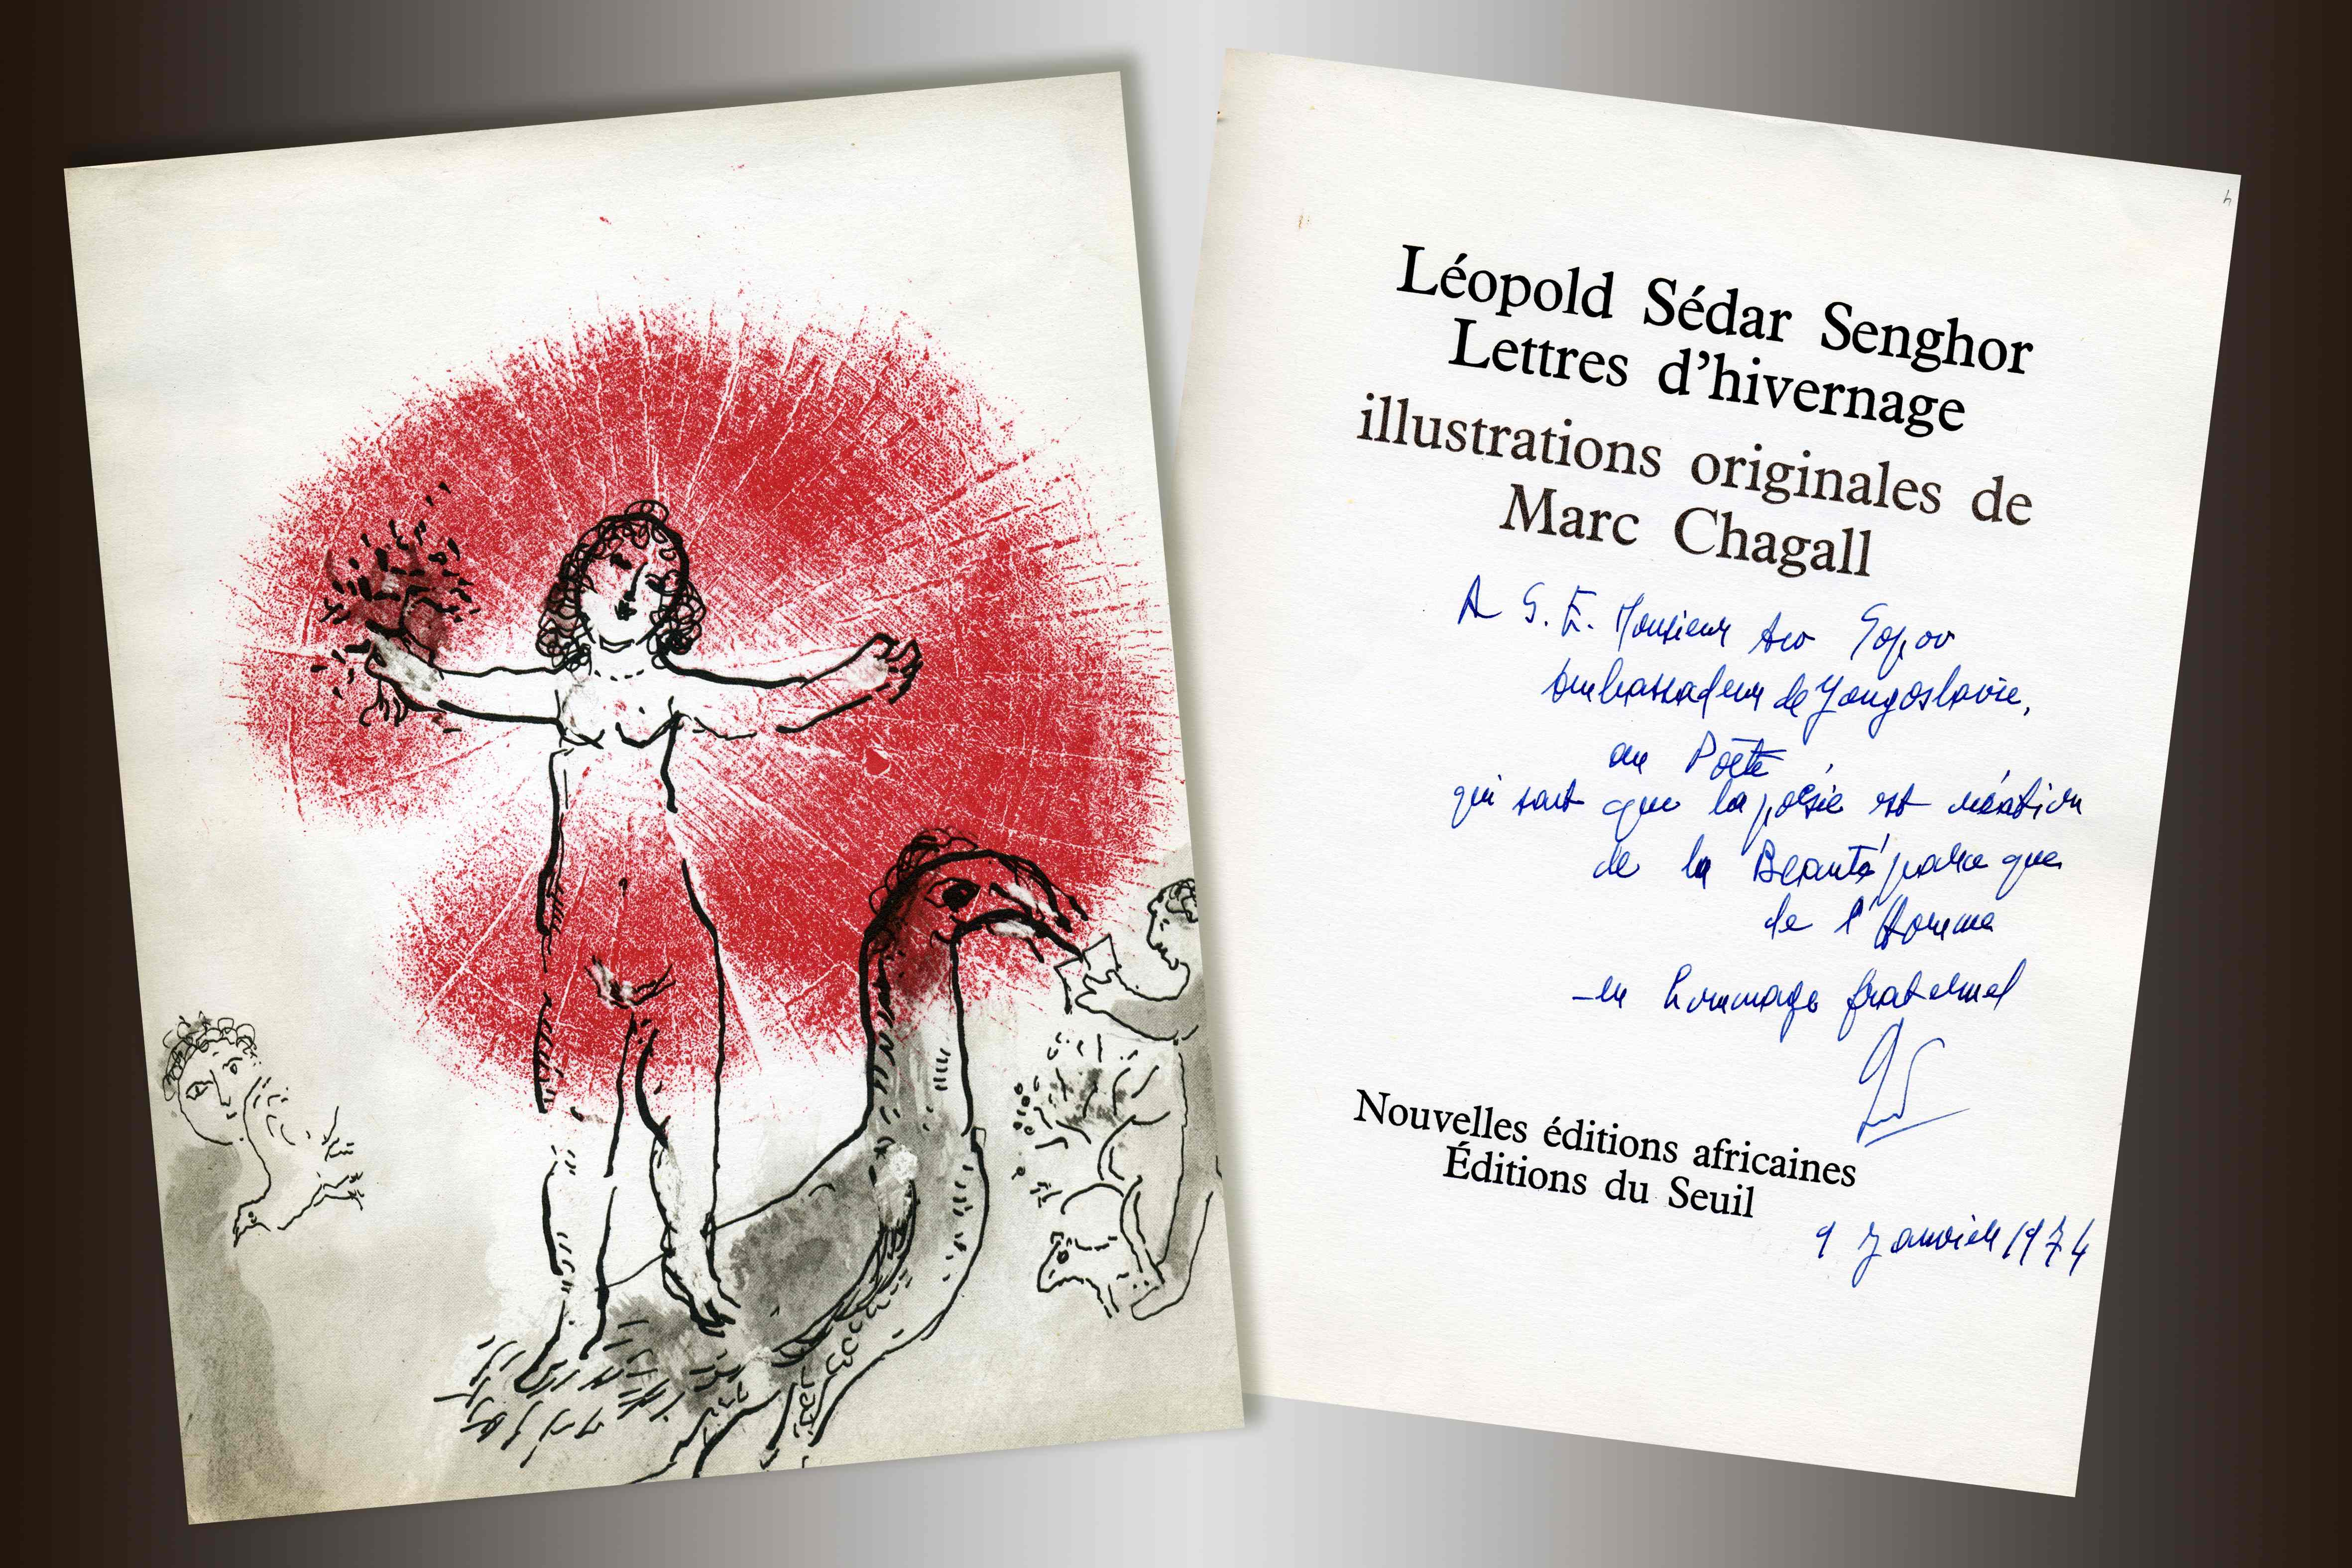 Léopold Sédar Senghor
Lettres d'hivernage
illustrations originales de
Marc Chagall
A S. E. Monsieur Aco Šopov
Ambassadeur de Yougoslavie,
au Poète
qui sait que la poésie est création
de la Beauté parce que
de l'Homme
–en hommage fraternel
Nouvelles éditions africaines
Éditions du Seuil
9 Janvier 1974